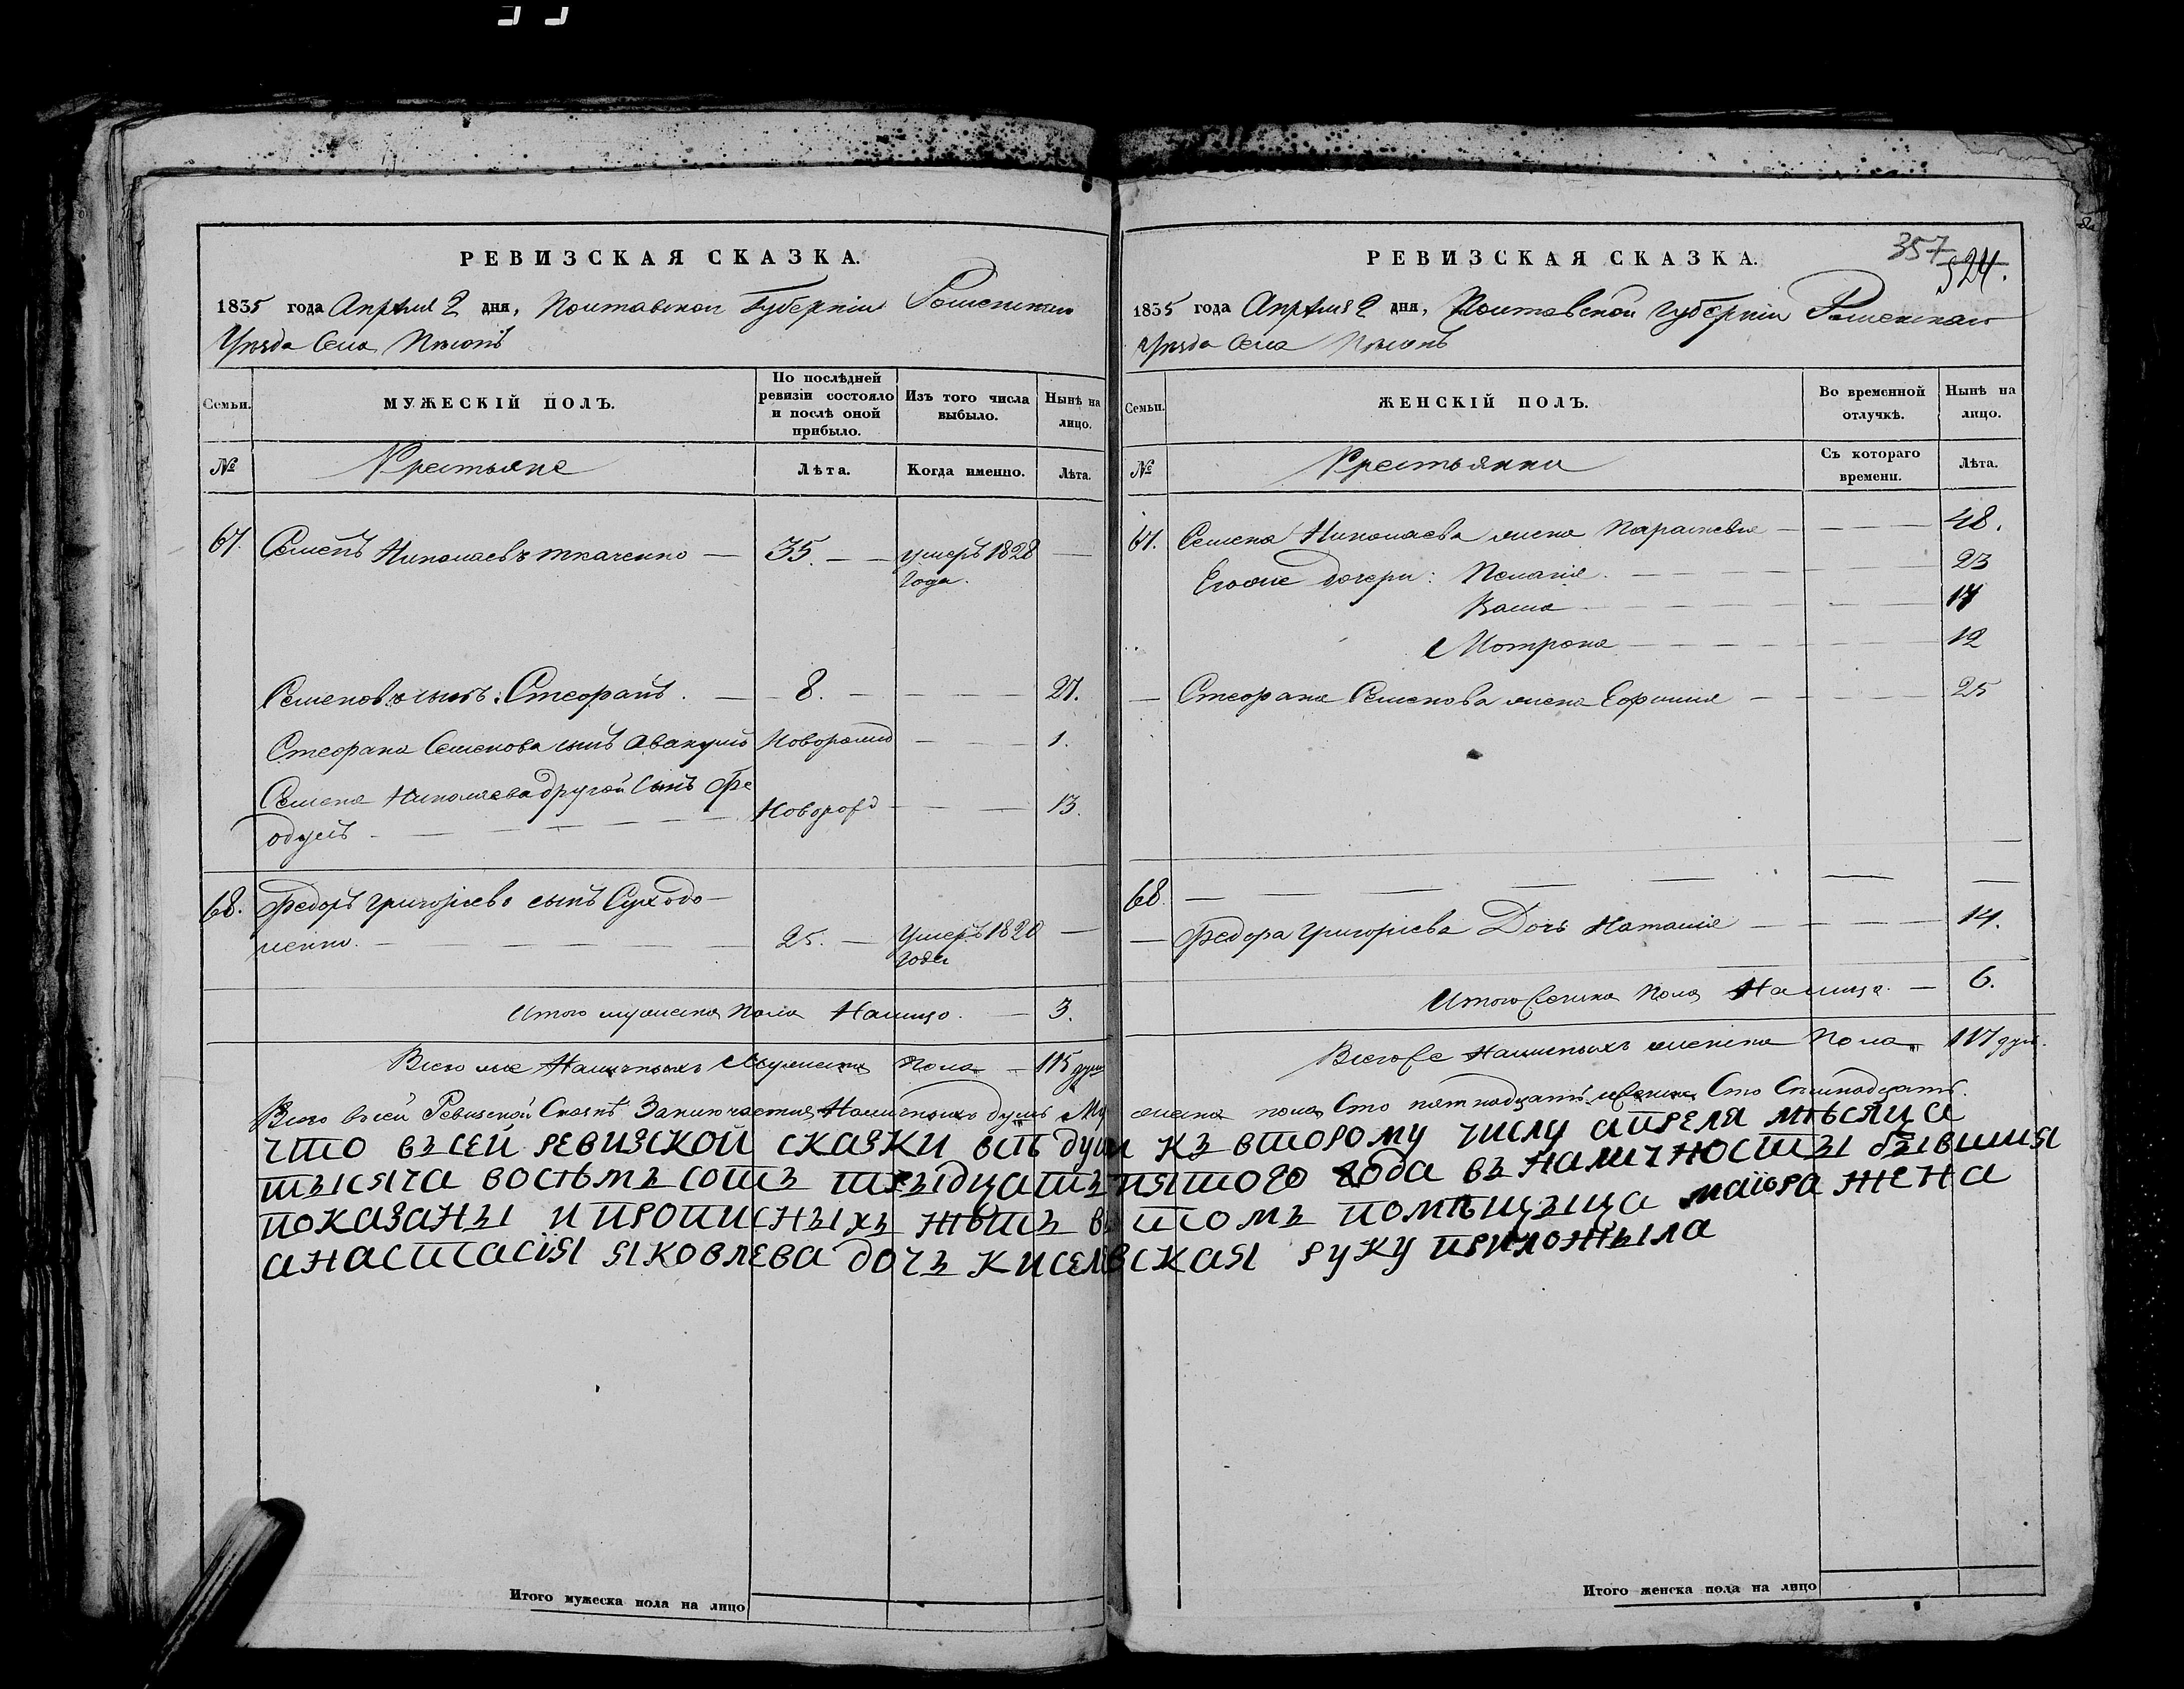 РЕВИЗСКАЯ СКАЗКА.
1835 года Апрѣля 2 дня, Полтавской Губерніи Роменскаго
Уѣзда Села
Семьи.
МУЖЕСКІЙ ПОЛЪ.
По послѣдней ревизіи состояло и послѣ оной прибыло.
Изъ того числа выбыло.
Нынѣ на лицо.
№
Крестьяне
Лѣта.
Когда именно.
Лѣта.
67. Семенъ Николаевъ ткаченко — 35. — умеръ 1828 —
года.
Семеновъ сынъ: Стефанъ. — 8. — 27.
Стефана Семенова сынъ Авакумъ Новорожд — 1.
Семена Николаева другой сынъ Фе
одулъ — Новорожд — 13.
68. Федоръ григоріевъ сынъ Суходо—
ленко. — 25. — Умеръ 1820 —
года
Итого мужеска пола Налицо. — 3.
Всего же Наличныхъ Мужеска Пола — 115 душ
РЕВИЗСКАЯ СКАЗКА.
357
524.
1835 года Апрѣля 2 дня, Полтавской губерніи Роменскаго
Уѣзда Села
Семьи.
ЖЕНСКІЙ ПОЛЪ.
Во временной отлучкѣ.
Нынѣ на лицо.
№
Крестьянки
Съ котораго времени.
Лѣта.
67. Семена Николаева жена Параскевія — 48.
Егоже дочери: Пелагія. — 23
17
Мотрона — 12
— Стефана Семенова жена Ефимія — 25
68. —
— Федора григоріева Дочь Наталія — 14.
Итого Женска пола Налицо. — 6.
Всего же Наличныхъ женска Пола 117 душ.
Всего въ сей Ревизской Сказкѣ Заключается Наличныхъ душъ Му жеска пола Сто пятнадцать женска Сто Семнадцать.
что въ сей ревизской сказки всѣ души къ второму числу апреля мѣсяца
тысяча восьмъ сотъ трыдцатъ пятого года въ наличносты бывшия
показаны и прописныхъ нѣтъ въ томъ помѣщыца маіора жена
анастасія яковлева дочъ киселевская руку приложыла
Итого мужеска пола на лицо
Итого женска пола на лицо